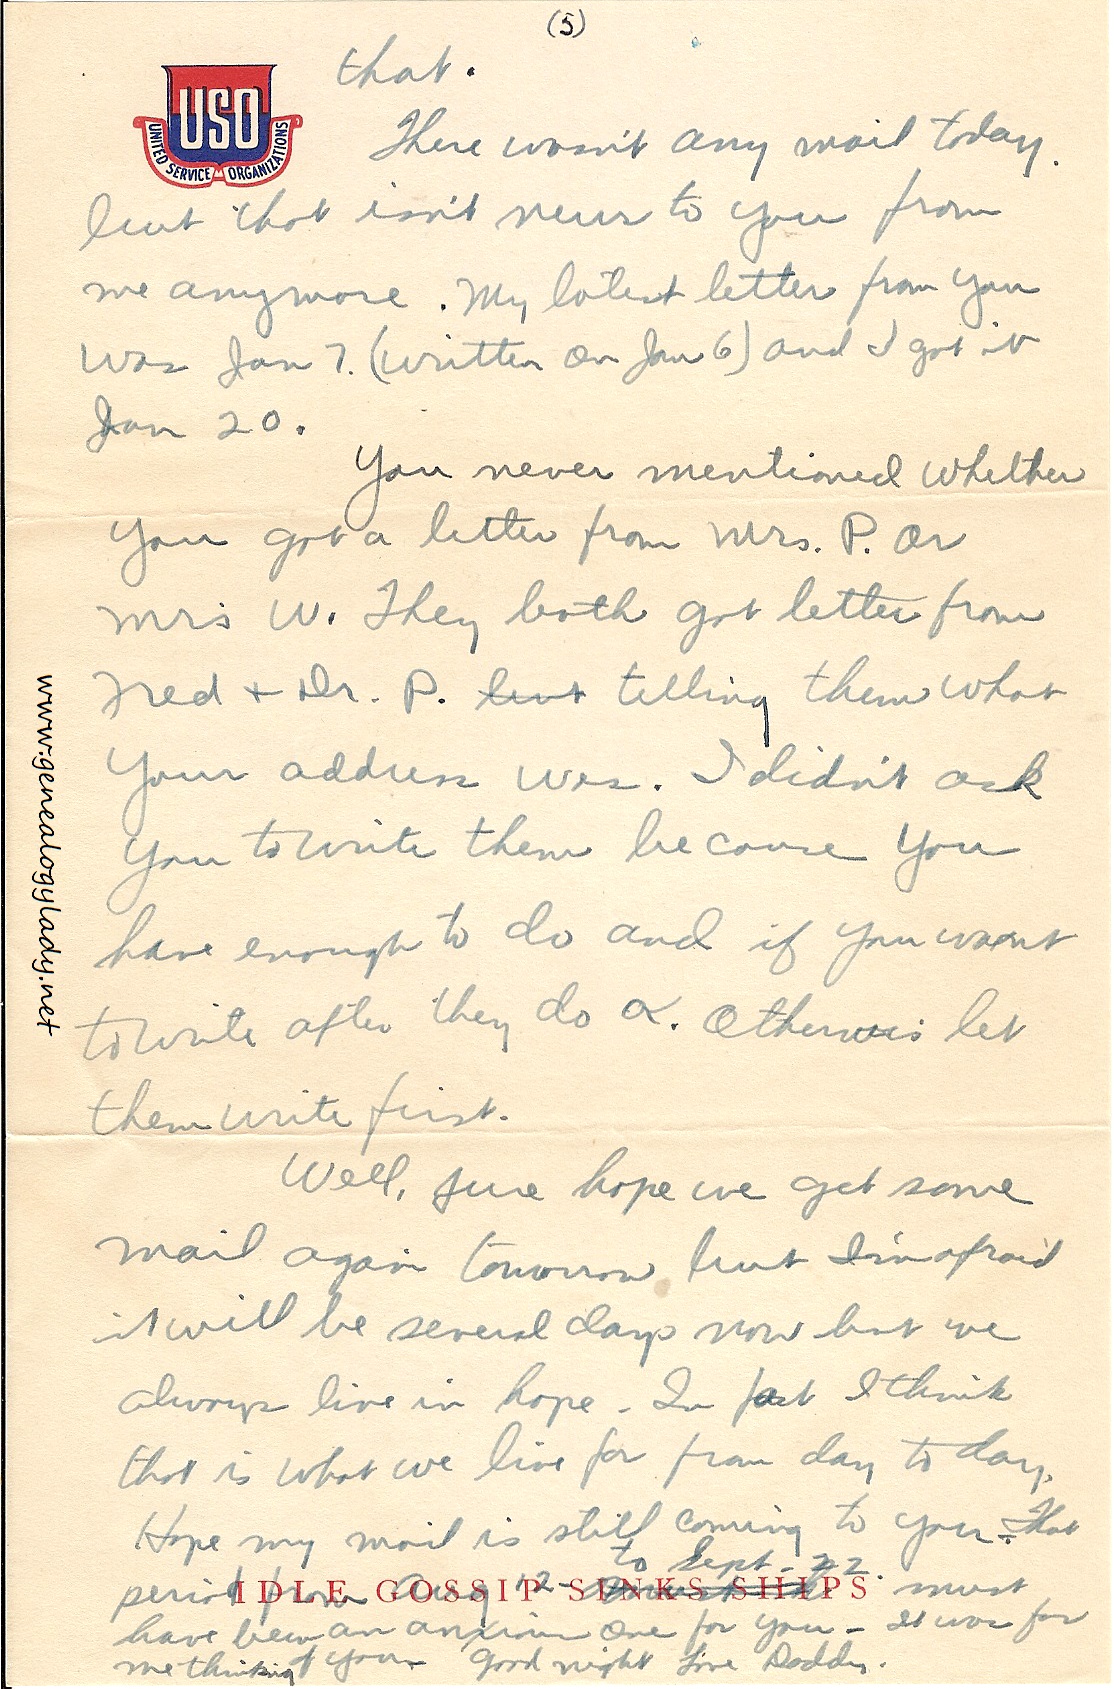 (5)
USO
UNITED SERVICE ORGANIZATIONS
that.
There wasn't any mail today.
but that isn't news to you from
me anymore. My latest letter from you
was Jan 7. (written on Jan 6) and I got it
Jan 20.
You never mentioned whether
you got a letter from Mrs. P. or
Mrs W. They both got letter from
Fred + Dr. P. but telling them what
your address was. I didn't ask
you to write them because you
have enough to do and if you want
to write after they do OK. Otherwis let
them write first.
Well, sure hope we get some
mail again tomorrow but I'm afraid
it will be several days now but we
always live in hope. In fact I think
that is what we live for from day to day.
Hope my mail is still coming to you. That
to Sept - 22.
period from Aug 12 must
IDLE GOSSIP SINKS SHIPS
have been an anxious one for you - It was for
me thinking of you. Good night Love Daddy.
www.genealogylady.net